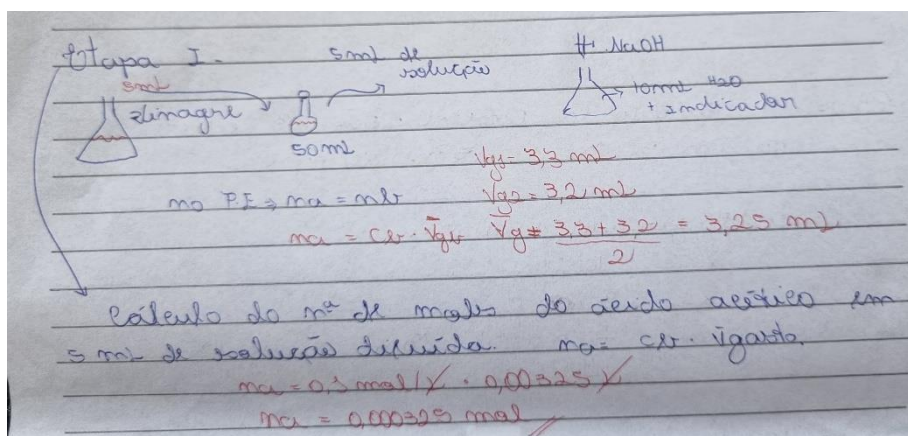 Etapa I.
5mL de solução
# NaOH
5mL
vinagre
50mL
10mL H2O
+ Indicador
Vg1 = 3,3 mL
Vg2 = 3,2 mL
no P.E → na = nb
na = Cb . V̄gb V̄g = 3,3 + 3,2 / 2 = 3,25 mL
Cálculo do nº de mols do ácido acético em
5 mL de solução diluída. na = cb . v̄gasto.
na = 0,1 mol/L . 0,00325 L
na = 0,000325 mol